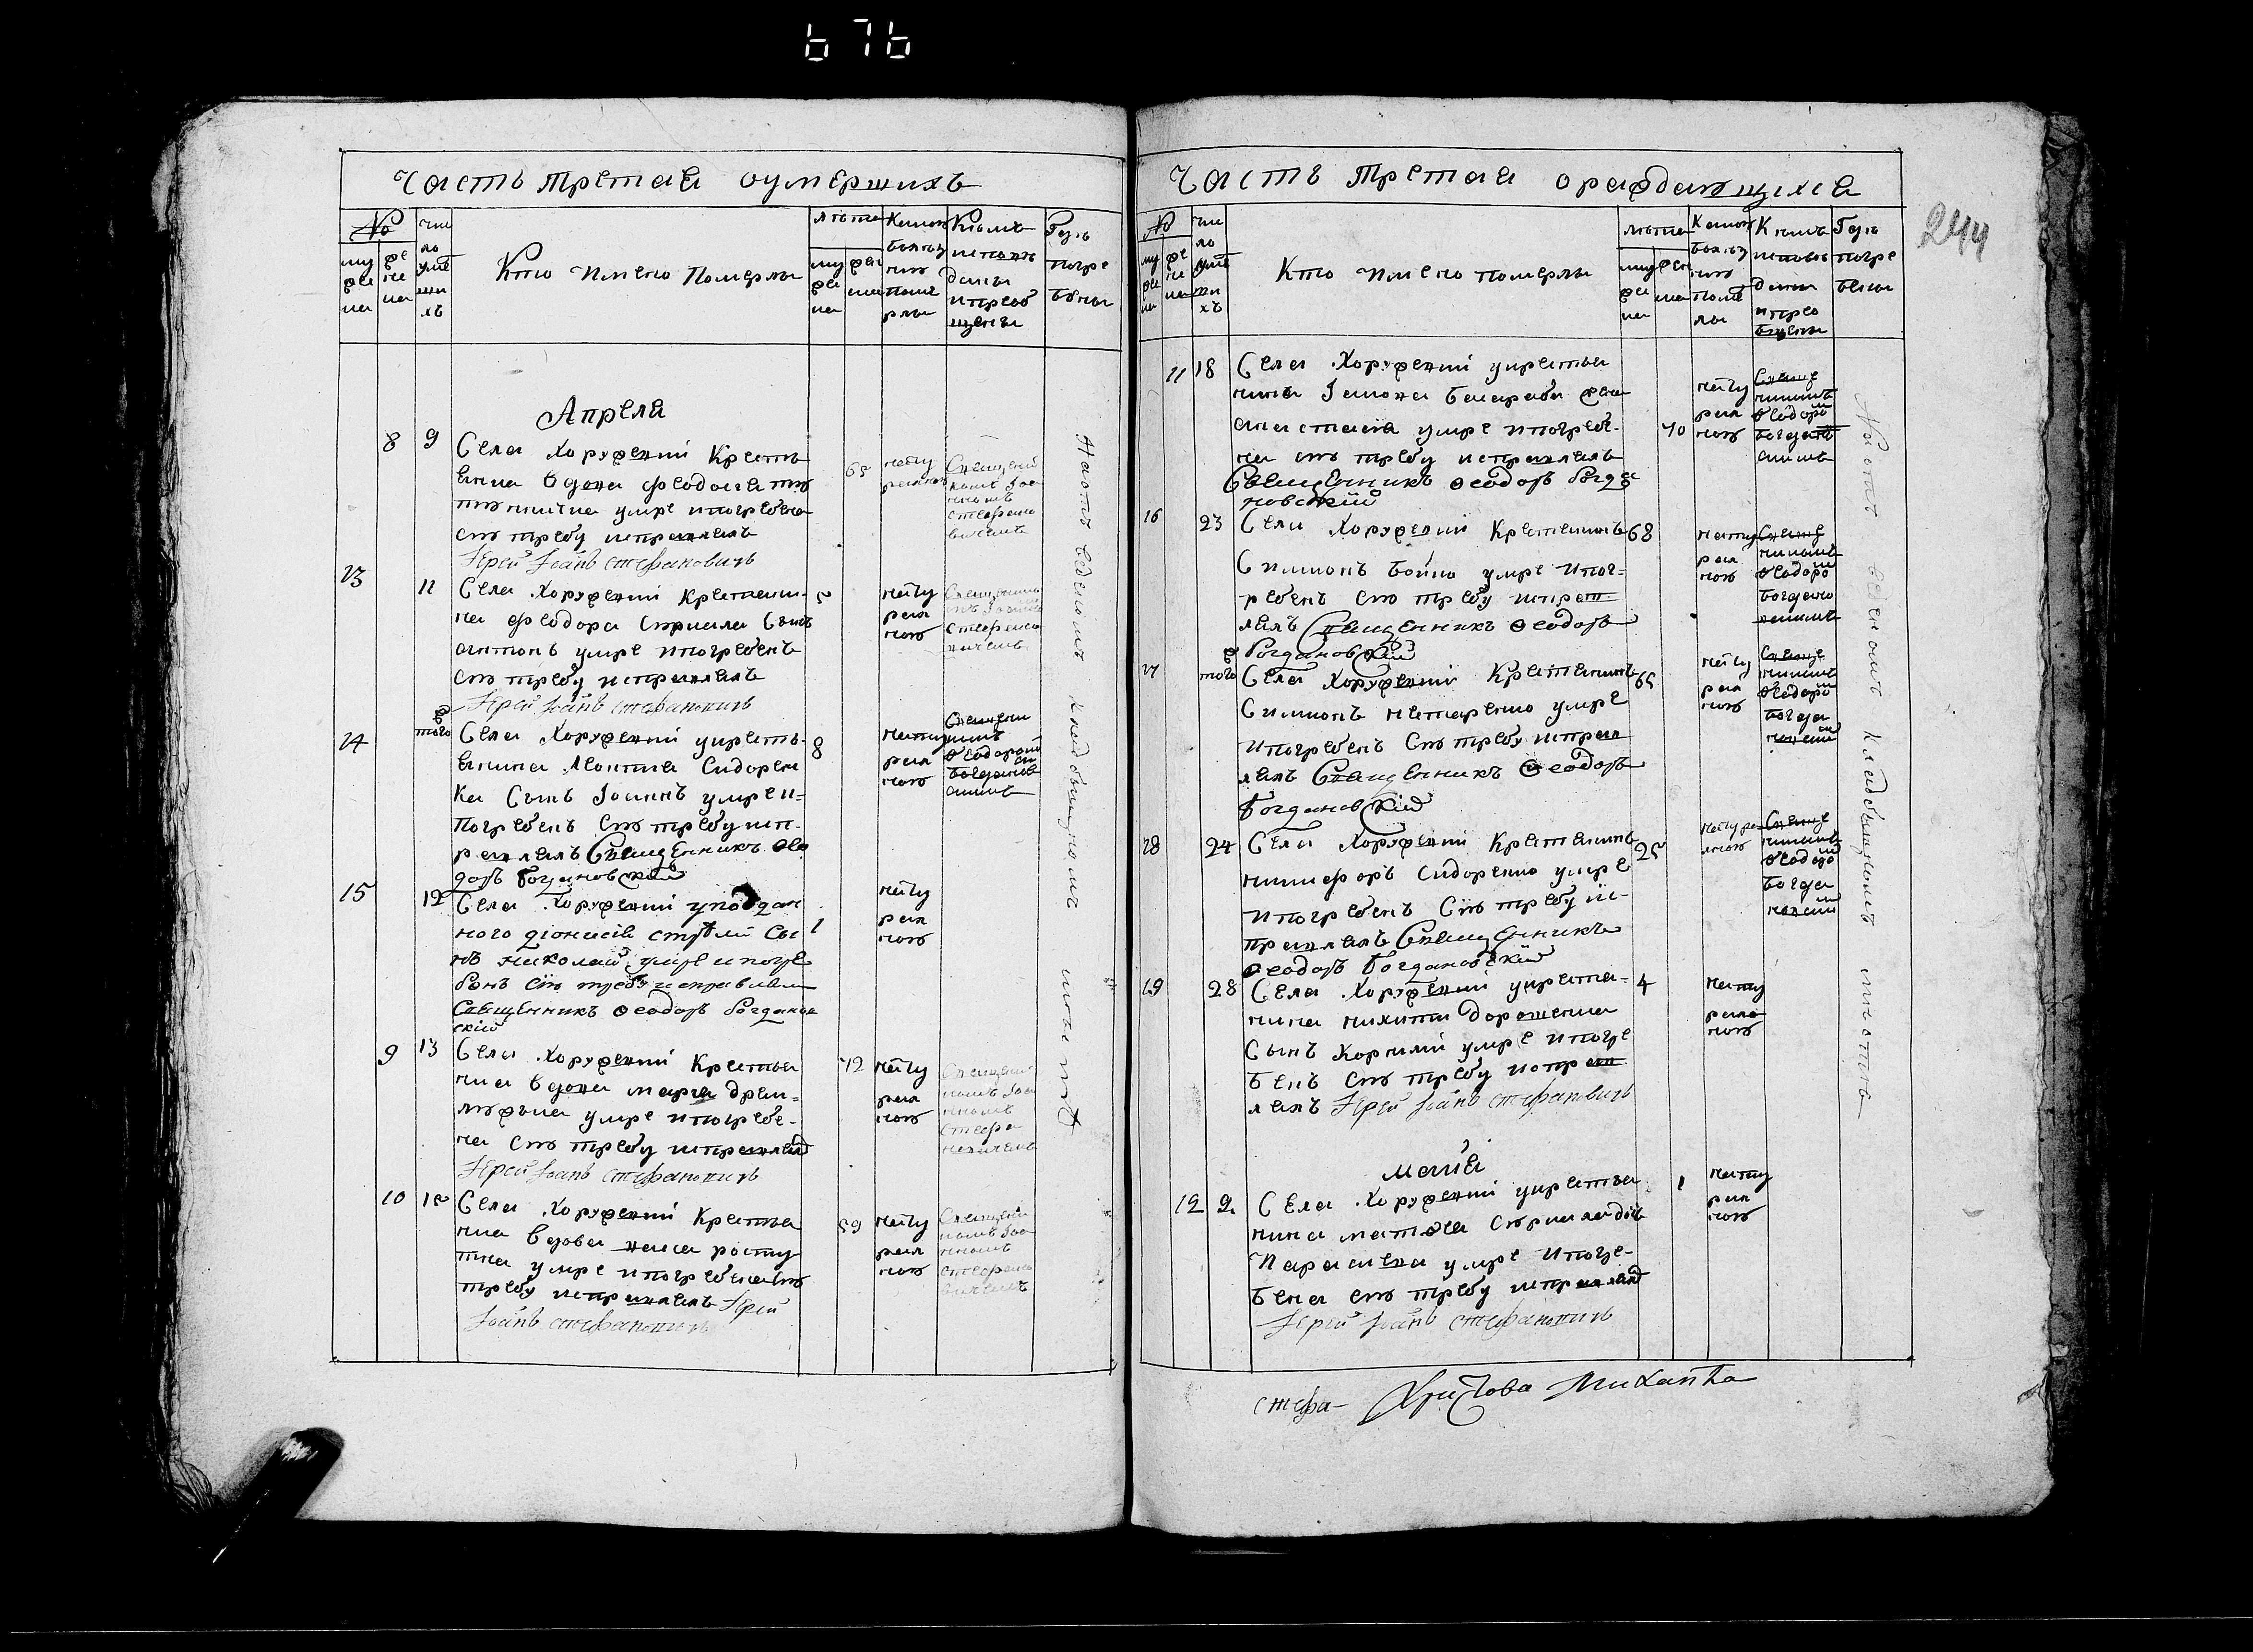 676
Часть третая оумершихъ
№
му
же
на
же
не
на
чис
ло
уме
ши
хъ
Кто имено померлы
лѣта
му
же
на
жен
ена
Какою
болѣз
нію
поме
рлы
Кѣмъ
исповѣ
даны
и преоб
щены
Гдѣ
погре
бены
Апреля
8 9 Села Хоружевки Кресть
янка вдова феодосіа
умре и погребена
сію требу исправлялъ
Іерей Іоанъ Стефановичъ
65
нату
ралною
Священи
комъ Іоа
нномъ
Стефано
вичемъ
13 11 Села Хоружевки Крестянин-
на феодора сынъ
антонъ умре и погребенъ
сію требу исправлялъ
Іерей Іоанъ Стефановичъ
5
нату
рал
ною
Священикомъ
Стефано
вичемъ
14 того Села Хоружевки у крсть-
янина Леонтиа Сидорен
ка Сынъ Іоаннъ умре и-
погребенъ сію требу исп-
равлялъ Священникъ Ѳео
доръ Богдановскій
8
нату
рал
ною
Священи
комъ
Ѳеодоромъ
Богданов
скимъ
15 12 Села Хоружевки у поддан
ного діонисія стрѣли Сы
нъ Николай умре и погре
бенъ сію требу исправлялъ
Священникъ Ѳеодоръ Богданов
скій
1
нату
рал
ною
9 13 Села Хоружевки Крестья
нка вдова марѳа
умре и погребе-
на сію требу исправлялъ
Іерей Іоанъ Стефановичъ
72
нату
рал
ною
Священи
комъ Іоа
нномъ
Стефа
новичемъ
10 15 Села Хоружевки Крестья
нка вдова
умре и погребена сію
требу исправлялъ Іерей
Іоанъ Стефановичъ
59
нату
рал
ною
Священи
комъ Іоа
нномъ
Стефано
вичемъ
На отведеномъ кладбищномъ мѣстѣ
Часть третая ораждающихся
244
№
му
же
на
же
не
на
чис
ло
уме
ши
хъ
Кто имено померлы
лѣта
му
же
на
жен
на
Какою
болѣз
нію
поме
лы
Кѣмъ
исповѣ
даны
и прео
бщены
Гдѣ
погре
бены
11 18 Села Хоружевки у крестья
нина Іакова Басараба жена
анастасия умре и погребе-
на сію требу исправлялъ
Священникъ Ѳеодоръ Богда
новскій
70
нату
рал
ною
Священе
никомъ
Ѳеодоромъ
Богданов
скимъ
16 23 Села Хоружевки Крестянинъ
Симионъ Бойко умре и пог-
ребенъ сію требу исправ
лялъ Священникъ Ѳеодоръ
Богдановскій
68
нату
рал
ною
Священе
никомъ
Ѳеодоромъ
Богдано
вскимъ
17 того Села Хоружевки Крестянинъ
Симионъ умре
и погребенъ сію требу исправ
лялъ Священникъ Ѳеодоръ
Богдановскій
65
нату
рал
ною
Священе
никомъ
Ѳеодоромъ
Богда
новскимъ
18 24 Села Хоружевки Крестянинъ
никифоръ Сидоренко умре
и погребенъ сію требу ис-
правлялъ Священникъ
Ѳеодоръ Богдановскій
25
натура
лною
Священе
никомъ
Ѳеодоромъ
Богда
новским
19 28 Села Хоружевки у крестя-
нина никити дорошенка
Сынъ Корнилій умре и погре
бенъ сію требу исправ
лялъ Іерей Іоанъ Стефановичъ
4
нату
рало
ною
маиа
12 2 Села Хоружевки у крестья
нина матвѣа
Параскева умре и погре-
бена сію требу исправлялъ
Іерей Іоанъ Стефановичъ
1
нату
рал
ною
На отведеномъ кладбищномъ мѣстѣ
стефа-